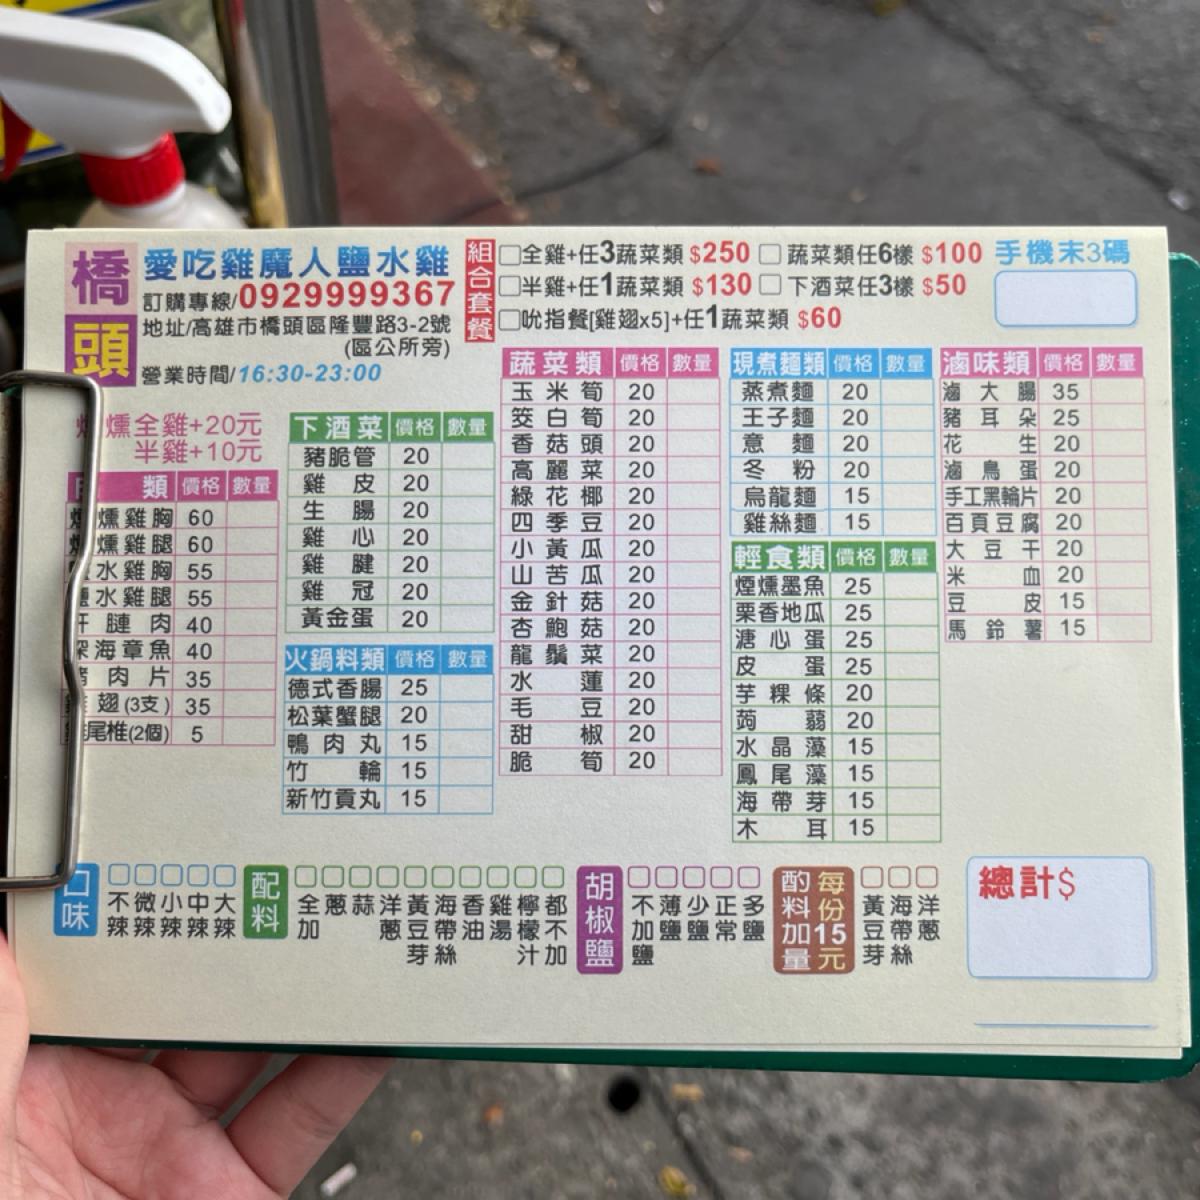 橋頭
愛吃雞魔人鹽水雞
訂購專線/0929999367
地址/高雄市橋頭區隆豐路3-2號
(區公所旁)
營業時間/16:30-23:00
組合套餐
全雞+任3蔬菜類 $250
蔬菜類任6樣 $100
半雞+任1蔬菜類 $130
下酒菜任3樣 $50
吮指餐[雞翅x5]+任1蔬菜類 $60
手機末3碼
燻全雞+20元
半雞+10元
類 價格 數量
燻雞胸 60
燻雞腿 60
水雞胸 55
水雞腿 55
肝腱肉 40
深海章魚 40
肉片 35
翅(3支) 35
尾椎(2個) 5
下酒菜 價格 數量
豬脆管 20
雞皮 20
生腸 20
雞心 20
雞腱 20
雞冠 20
黃金蛋 20
火鍋料類 價格 數量
德式香腸 25
松葉蟹腿 20
鴨肉丸 15
竹輪 15
新竹貢丸 15
蔬菜類 價格 數量
玉米筍 20
筊白筍 20
香菇頭 20
高麗菜 20
綠花椰 20
四季豆 20
小黃瓜 20
山苦瓜 20
金針菇 20
杏鮑菇 20
龍鬚菜 20
水蓮 20
毛豆 20
甜椒 20
脆筍 20
現煮麵類 價格 數量
蒸煮麵 20
王子麵 20
意麵 20
冬粉 20
烏龍麵 15
雞絲麵 15
輕食類 價格 數量
煙燻墨魚 25
栗香地瓜 25
溏心蛋 25
皮蛋 25
芋粿條 20
蒟蒻 20
水晶藻 15
鳳尾藻 15
海帶芽 15
木耳 15
滷味類 價格 數量
滷大腸 35
豬耳朵 25
花生 20
滷鳥蛋 20
手工黑輪片 20
百頁豆腐 20
大豆干 20
米血 20
豆皮 15
馬鈴薯 15
口味
不辣
微辣
小辣
中辣
大辣
配料
全加
蔥
蒜
洋蔥
黃豆芽
海帶絲
香油
雞湯
檸檬汁
都不加
胡椒鹽
不加鹽
薄鹽
少鹽
正常
多鹽
酌料加量
每份15元
黃豆芽
海帶絲
洋蔥
總計$